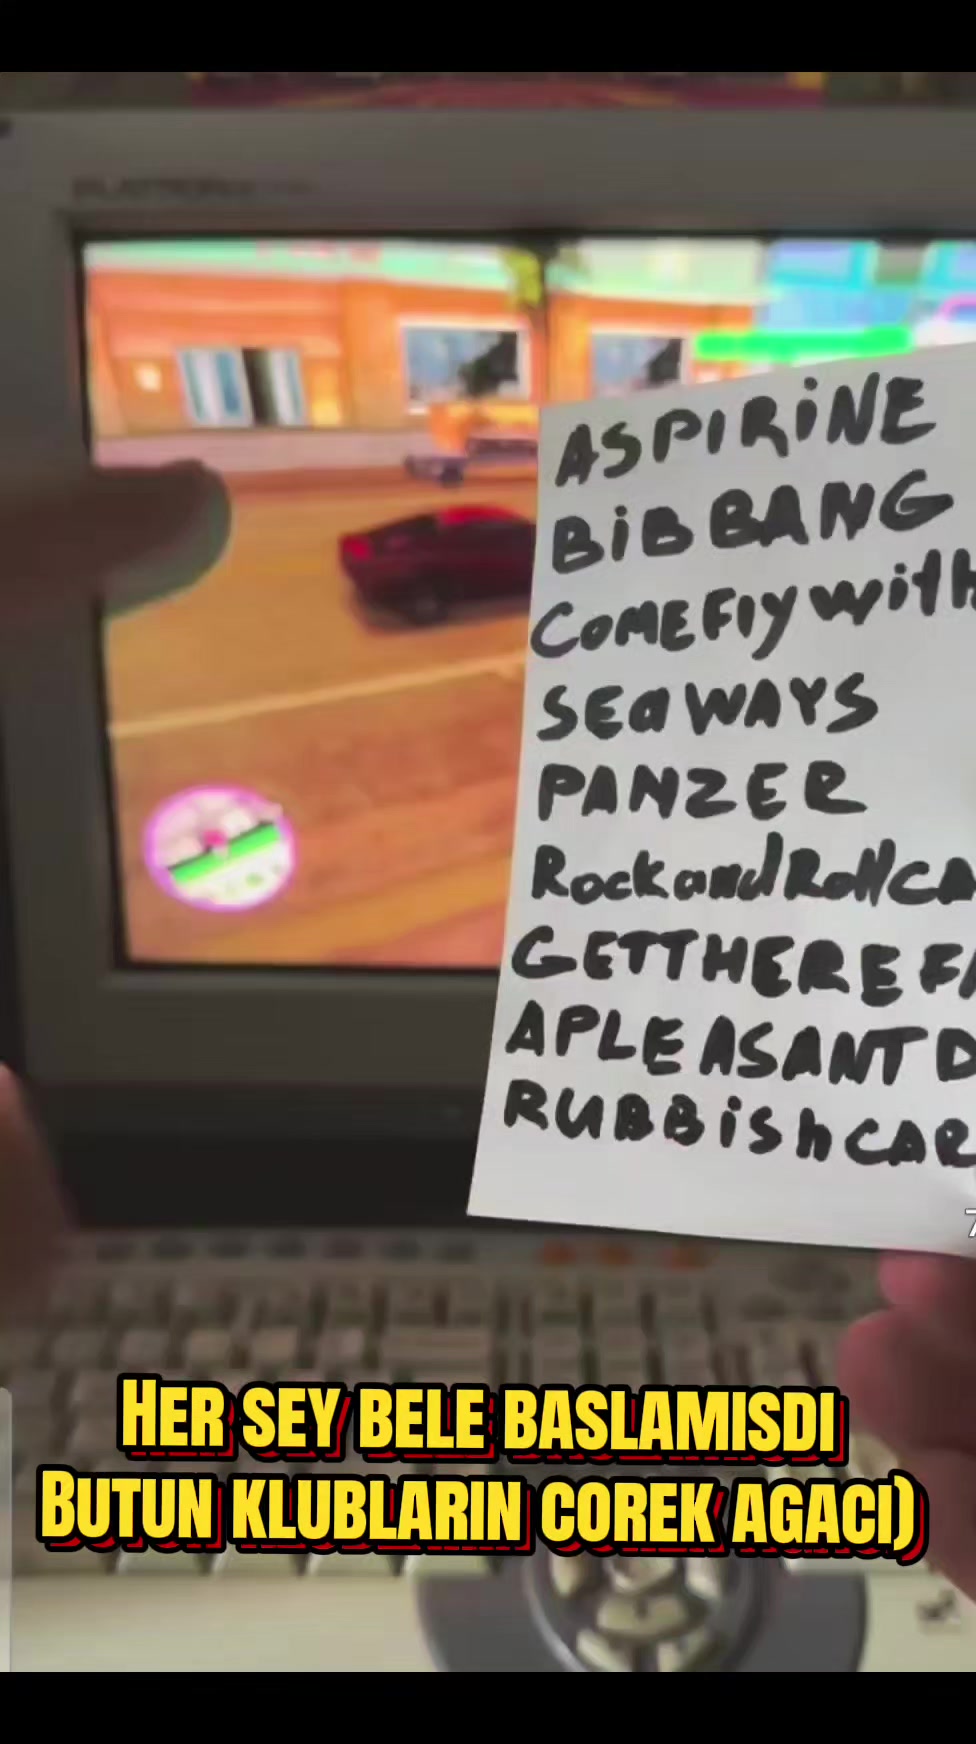 ASPIRiNE
BiBBANG
COMEFlywith
SEaWAYS
PANZER
RockandRollCA
GETTHEREFA
APLEASANTD
RUBBiShCAR
7
HER SEY BELE BASLAMISDI
BUTUN KLUBLARIN COREK AGACI)